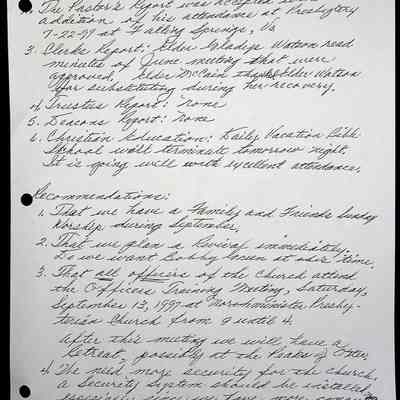 The Pastor's Report was accepted with
addition of his attendance at Presbytery
7-22-97 at Falling Springs, Va
3. Clerks Report: Elder Gladys Watson read
minutes of June meeting that were
approved. Elder McCain thanked Elder Watson
for substituting during her recovery.
4. Trustees Report: none
5. Deacons Report: none
6. Christian Education: Daily Vacation Bible
School will terminate tomorrow night.
It is going well with excellent attendance.
Recommendations:
1. That we have a Family and Friends Sunday
Worship during September.
2. That we plan a Revival immediately.
Do we want Bobby at this time.
3. That all officers of the Church attend
the Officers Training Meeting, Saturday,
September 13, 1997 at Northminister Presby-
terian Church from 9 until 4.
After this meeting we will have a
Retreat, possibly at the Peaks of Otter.
4. The need more security for the church.
a Security System should be installed
especially since we have more